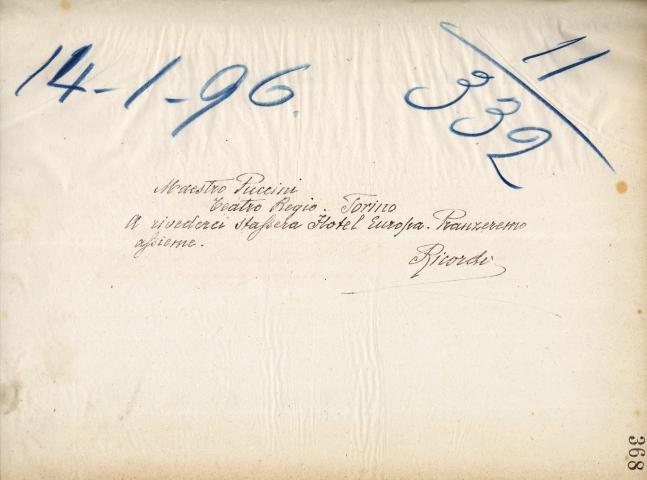 14-1-96.
11
332
Maestro Puccini
Teatro Regio. Torino
A rivederci stassera Hotel Europa. Pranzeremo
assieme.
Ricordi
368